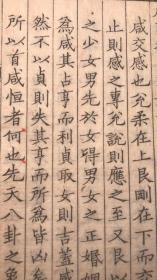 咸交感也兌柔在上艮剛在下而交
止則感之專兌說則應之至又艮以
之少女男先於女得男女之正婚姻
為咸其占亨而利貞取女則吉蓋感
然不以貞則失其亨而所為皆凶矣
所以首咸恒者何也先天八卦之象